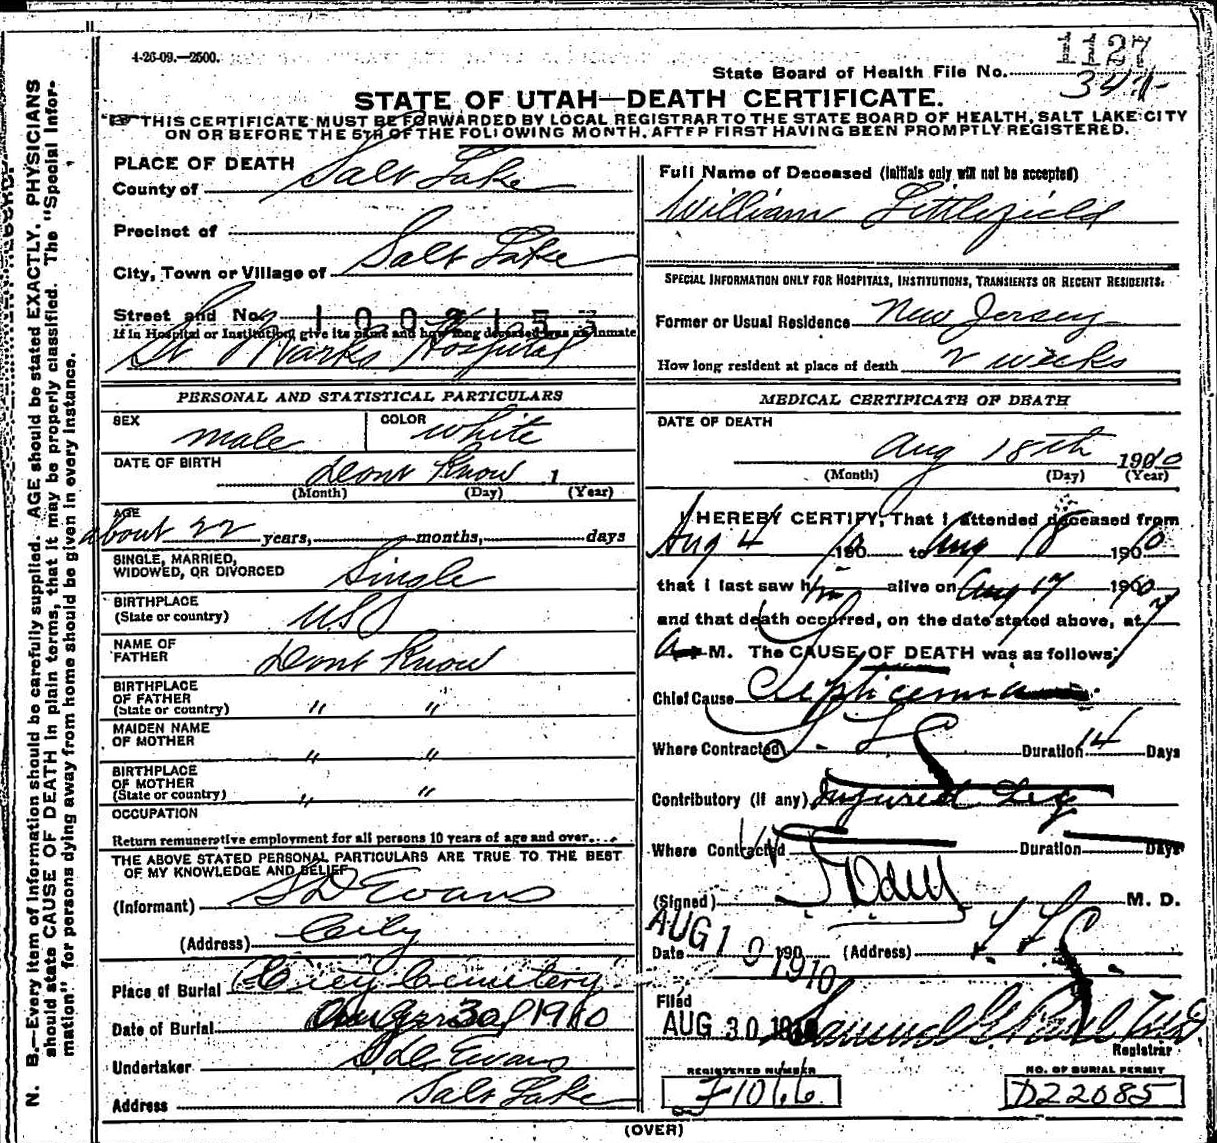 4-26-09.—2500.
1127
State Board of Health File No.
344
STATE OF UTAH—DEATH CERTIFICATE.
THIS CERTIFICATE MUST BE FORWARDED BY LOCAL REGISTRAR TO THE STATE BOARD OF HEALTH, SALT LAKE CITY
ON OR BEFORE THE 5TH OF THE FOLLOWING MONTH, AFTER FIRST HAVING BEEN PROMPTLY REGISTERED.
N. B.—Every item of information should be carefully supplied. AGE should be stated EXACTLY. PHYSICIANS
should state CAUSE OF DEATH in plain terms, that it may be properly classified. The "Special Infor-
mation" for persons dying away from home should be given in every instance.
PLACE OF DEATH
County of Salt Lake
Precinct of
City, Town or Village of Salt Lake
Street and No.
If in Hospital or Institution, give its name and how long deceased was an inmate
St Marks Hospital
PERSONAL AND STATISTICAL PARTICULARS
SEX male COLOR white
DATE OF BIRTH Dont Know 1
(Month) (Day) (Year)
AGE
about 22 years, months, days
SINGLE, MARRIED,
WIDOWED, OR DIVORCED Single
BIRTHPLACE
(State or country) U.S
NAME OF
FATHER Dont Know
BIRTHPLACE
OF FATHER
(State or country) " "
MAIDEN NAME
OF MOTHER " "
BIRTHPLACE
OF MOTHER
(State or country) " "
OCCUPATION
Return remunerative employment for all persons 10 years of age and over
THE ABOVE STATED PERSONAL PARTICULARS ARE TRUE TO THE BEST
OF MY KNOWLEDGE AND BELIEF
(Informant) S D Evans
(Address) City
Place of Burial City Cemetery
Date of Burial 30 1910
Undertaker S D Evans
Address Salt Lake
Full Name of Deceased (Initials only will not be accepted)
William Littlefield
SPECIAL INFORMATION ONLY FOR HOSPITALS, INSTITUTIONS, TRANSIENTS OR RECENT RESIDENTS:
Former or Usual Residence New Jersey
How long resident at place of death 2 weeks
MEDICAL CERTIFICATE OF DEATH
DATE OF DEATH
Aug 18th 1910
(Month) (Day) (Year)
I HEREBY CERTIFY, That I attended deceased from
Aug 4 10 to Aug 18 1910
that I last saw him alive on Aug 17 1910
and that death occurred, on the date stated above, at 7
A M. The CAUSE OF DEATH was as follows:
Chief Cause Septicemia
Where Contracted S. L. Duration 14 Days
Contributory (if any) Injured Leg
Where Contracted Duration Days
(Signed) Odell M. D.
Date AUG 19 1910 (Address) S. L.
Filed
AUG 30 1910 Samuel G. Paul
Registrar
REGISTERED NUMBER
F1066
NO. OF BURIAL PERMIT
D22085
(OVER)